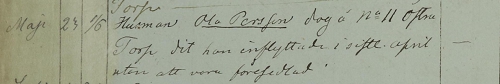 Torp
Maji 23 1/6 Husman Ola Persson dog å No 11 Östra
Torp dit han inflyttade i sistl. april —
utan att vara förefedlad